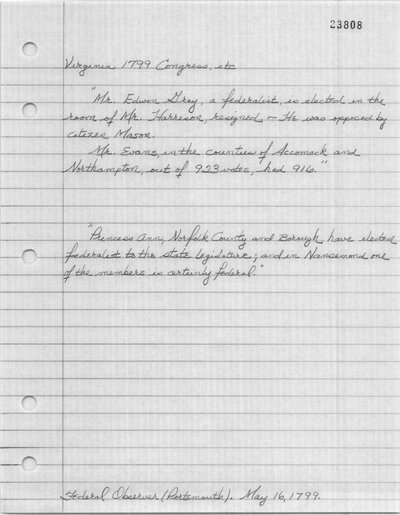 23808
Virginia 1799 Congress, etc
"Mr. Edwin Gray, a federalist, is elected in the
room of Mr. Harrison, resigned ~ He was opposed by
citizen Mason.
Mr. Evans, in the counties of Accomack and
Northampton, out of 923 votes, had 916."
"Princess Ann, Norfolk County and Borough have elected
federalist to the state legislature; and in Nansemond one
of the members is certainly federal."
Federal Observer (Portsmouth). May 16, 1799.